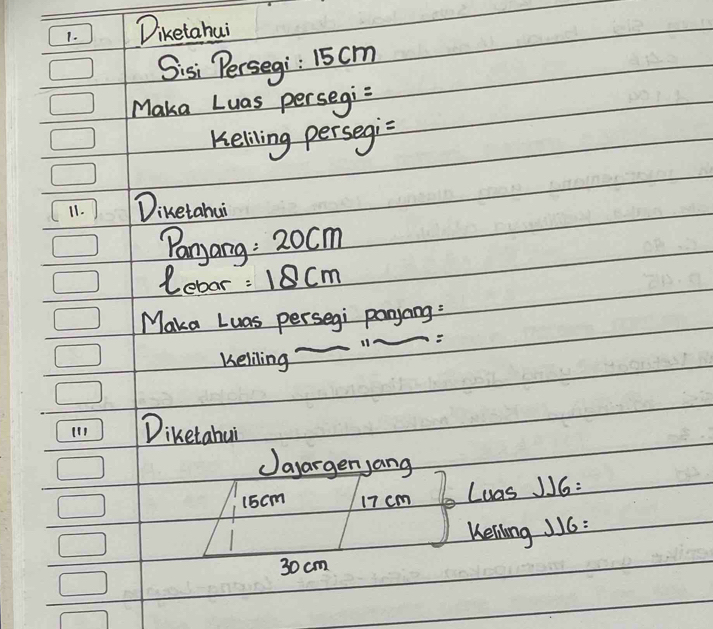 1. Diketahui
Sisi Persegi : 15 cm
Maka Luas persegi =
Keliling persegi =
11. Diketahui
Panjang : 20 cm
Lebar : 18 cm
Maka Luas persegi panjang :
Keliling ~ " ~ :
111 Diketahui
Jajargenjang
15 cm 17 cm Luas JJG :
Keliling JJG :
30 cm